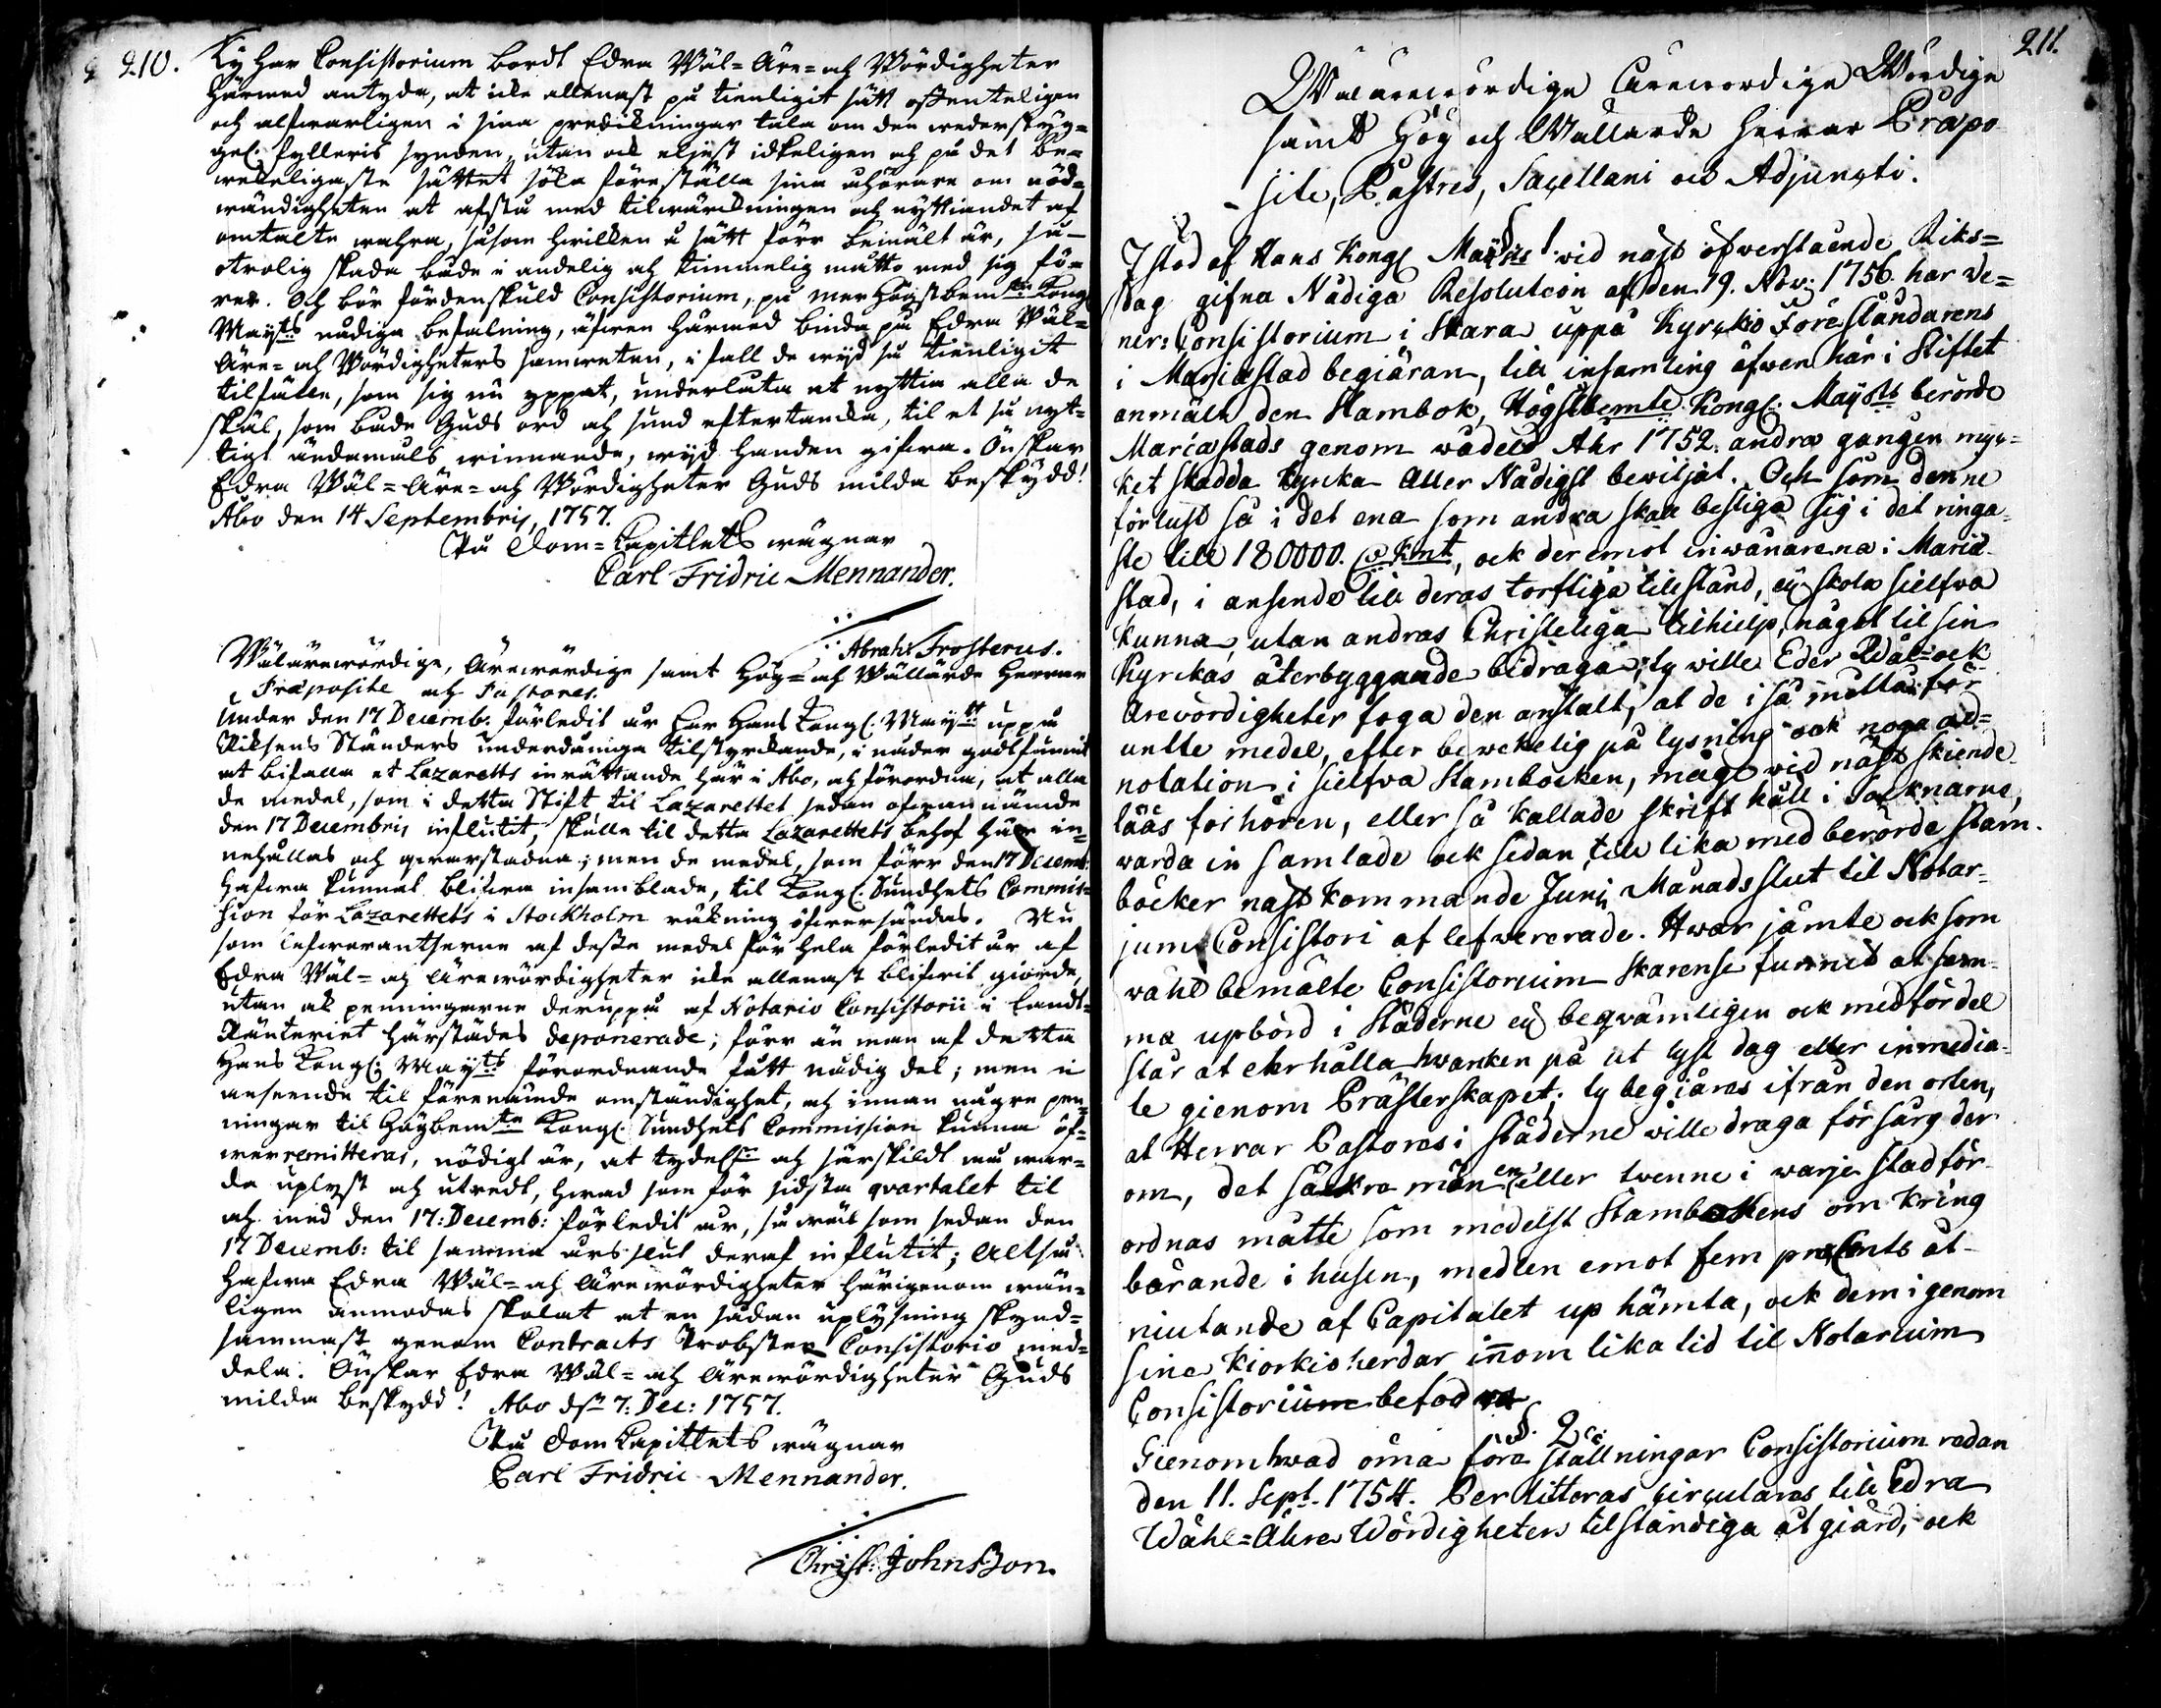 210.
Ty har Consistorium bordt Edra Wäl-Äre- och Wördigheter
härmed antyda, at icke allenast på tienligit sätt offenteligen
och alfwarligen i sina predikningar tala om den wederstyg=
gel. fylleris synden, utan ock eljest idkeligen och på det be=
wekeligaste sättet söka föreställa sina åhörare om nöd=
wändigheten at afstå med tilwärckningen och nyttiandet af
omtalte wahra, såsom hwilken å sätt förr bemält är, så
otrolig skada både i andelig och timmelig måtto med sig fö=
rer. Och bör fördenskuld Consistorium, på mer Högstbem:te Kongl.
May:ts nådiga befalning, äfwen härmed binda på Edra Wäl=
Äre- och Wördigheters samweten, i fall de wid så tienligit
tilfälle, som sig nu yppat, underlåta at nyttia alla de
skäl, som både Guds ord och sund eftertancka, til et så nyt=
tigt ändamåls winnande, wid handen gifwa. Önskar
Edra Wäl=Äre= och Wördigheter Guds milda beskydd!
Åbo den 14 Septembris, 1757.
På Dom=Capitlets wägnar
Carl Fridric Mennander.
Abrah: Frosterus.
Wälärewördige, Ärewördige samt Hög= och Wällärde Herrar
Præposite och Pastores.
Under den 17 Decemb. förledit år har Hans Kongl. May:tt uppå
Riksens Ständers underdåniga tilstyrckande, i nåder godtfunnit
at bifalla et Lazaretts inrättande här i Åbo, och förordna, at alla
de medel, som i detta Stift til Lazarettet sedan ofwannämde
den 17 Decembris influtit, skulle til detta Lazarettets behof här in=
nehållas och qwarstadna; men de medel, som förr den 17 Decemb:
hafwa kunnat blifwa insamblade, til Kongl. Sundhets Commis=
sion för Lazarettets i Stockholm räkning öfwersändas. Nu
som lefwerantserne af desse medel för hela förledit år af
Edra Wäl= och Ärewördigheter icke allenast blifwit giorde,
utan ock penningarne deruppå af Notario Consistorii i Landt=
Ränteriet härstädes deponerade; förr än man af detta
Hans Kongl. May:ts förordnande fått nådig del; men i
anseende til förenämde omständighet, och innan några pen=
ningar til Högbem:te Kongl. Sundhets Commission kunna öf=
wer remitteras, nödigt är, at tydel:n och särskildt må war=
da uplyst och utredt, hwad som för sidsta qvartalet til
och med den 17: Decemb: förledit år, så wäl som sedan den
17 Decemb: til samma års slut deraf influtit; Altså
hafwa Edra Wäl= och Ärewördigheter härigenom wän=
ligen anmodas skolat at en sådan uplysning skynd=
sammast genom Contracts Probsten Consistorio med=
dela. Önskar Edra Wäl= och Ärewördigheter Guds
milda beskydd! Åbo d:n 7: Dec: 1757.
På Dom Capitlets wägnar
Carl Fridric Mennander.
Christ: Johnsson.
211.
Wälärewördige Ärewordige Wördige
samt Hög och Wällärde Herrar Præpo
site, Pastres, Sacellani och Adjuncti.
§ 1
I stöd af Hans Kongl May:ts wid näst öfwerstaende Riks=
dag gifna Nådiga Resolution af den 19. Nov: 1756. har Ve=
ner: Consistorium i Skara uppå Kyrckio Föreståndarens
i Mariæstad begiäran, till insamling äfwen här i Stiftet
anmält den Stambok, Högstbemte Kongl: May:ts berörde
Mariæstads genom wådeld Åhr 1752. andra gangen myc=
ket skadda Kyrcka Aller Nådigst beviljat. Och som denne
förlust så i det ena som andra skall bestiga sig i det ringa=
ste till 180000. D:r Kmt, ock deremot inwånarena i Mariæ
stad, i anseende till deras torftiga tillstånd, ej skola sielfva
kunna, utan andras Christeliga tilhielp, något til sin
Kyrckas återbyggande bidraga; ty wille Eder Wäl= ock
Ärevördigheter foga den anstalt, at de i så måtto för
untte medel, efter bewekelig på lysning ock noga ad=
notation i sielfva Stambocken, måge vid näst skiende
lääs förhören, eller så kallade skrift håll i Socknarne,
warda in samlade ock sedan till lika med berörde stam
böcker näst kommande Junii Månads slut til Notar=
jum Consistori af lefwererade. Hwar jämte ock som
wähl bemälte Consistorium Skarense funnit at sam
ma upbörd i Städerne ej beqvämligen ock med fördel
står at ehrhålla hwarken på ut lyst dag eller immedia=
te gienom Prästerskapet; ty begiäres ifrån den orten,
at Herrar Pastores i städerne wille draga försörg der
om, det säckra män en eller twenne i warje stad för=
ordnas måtte som medelst Stambokens om kring
bärande i husen, medlen emot fem proCents åt=
niutande af Capitalet up hämta, ock dem igenom
sine kiorkio herdar innom lika tid til Notarium
Consistorium befodra
§. 2.
Gienom hwad öma före ställningar Consistorium redan
den 11. Sept. 1754. Per litteras circulares till Edra
Wähl=Ähre Wördigheters tilständiga åtgiärd, ock